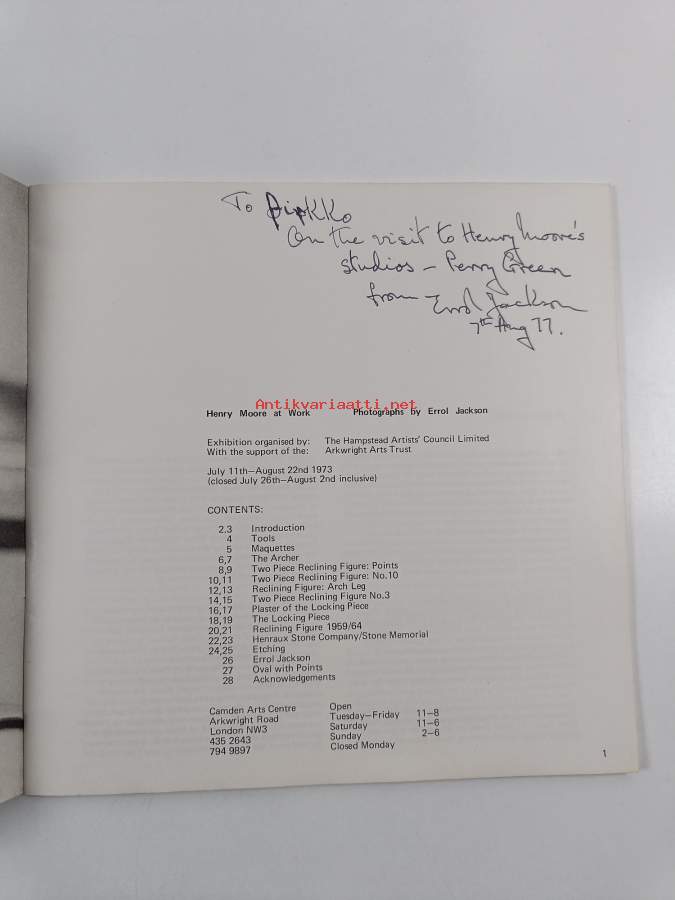 To Pirkko
On the visit to Henry Moore's
studios – Perry Green
from Errol Jackson
7th Aug 77.
Antikvariaatti.net
Henry Moore at Work Photographs by Errol Jackson
Exhibition organised by: The Hampstead Artists' Council Limited
With the support of the: Arkwright Arts Trust
July 11th–August 22nd 1973
(closed July 26th–August 2nd inclusive)
CONTENTS:
2,3 Introduction
4 Tools
5 Maquettes
6,7 The Archer
8,9 Two Piece Reclining Figure: Points
10,11 Two Piece Reclining Figure: No.10
12,13 Reclining Figure: Arch Leg
14,15 Two Piece Reclining Figure No.3
16,17 Plaster of the Locking Piece
18,19 The Locking Piece
20,21 Reclining Figure 1959/64
22,23 Henraux Stone Company/Stone Memorial
24,25 Etching
26 Errol Jackson
27 Oval with Points
28 Acknowledgements
Camden Arts Centre
Arkwright Road
London NW3
435 2643
794 9897
Open
Tuesday–Friday 11–8
Saturday 11–6
Sunday 2–6
Closed Monday
1